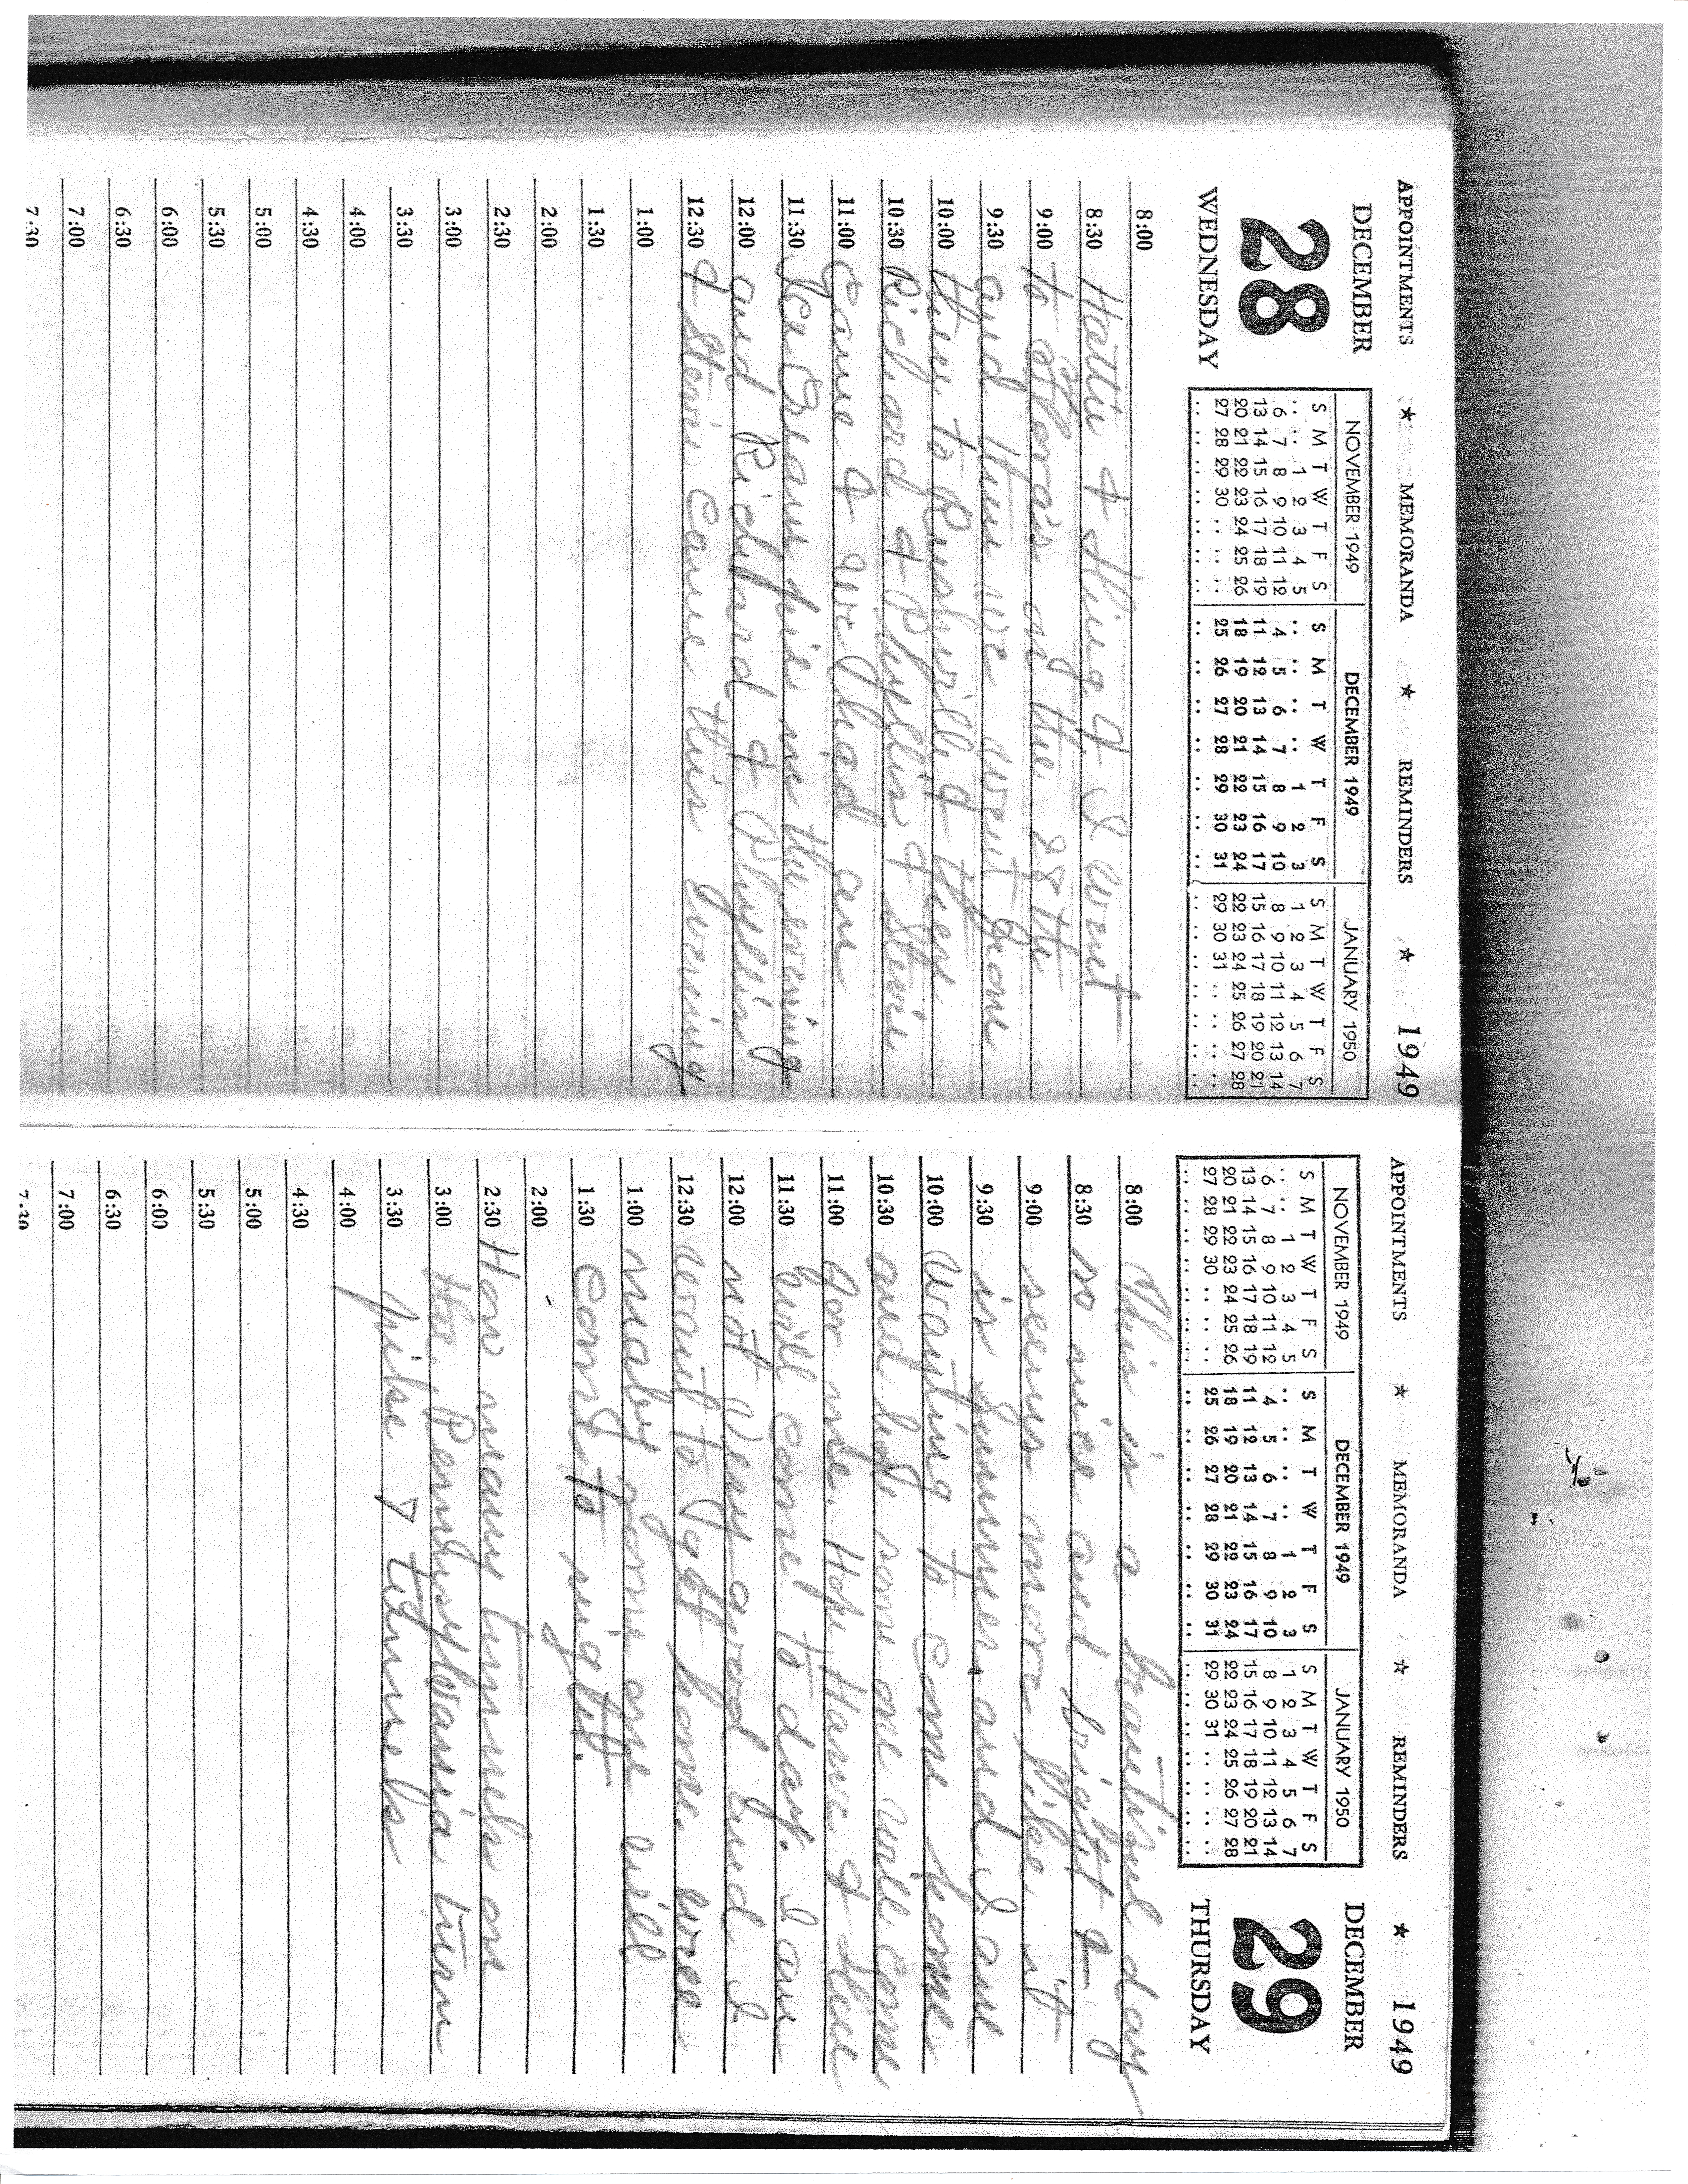 APPOINTMENTS ★ MEMORANDA ★ REMINDERS ★ 1949
DECEMBER
28
WEDNESDAY
NOVEMBER 1949
S M T W T F S
.. .. 1 2 3 4 5
6 7 8 9 10 11 12
13 14 15 16 17 18 19
20 21 22 23 24 25 26
27 28 29 30 .. .. ..
DECEMBER 1949
S M T W T F S
.. .. .. .. 1 2 3
4 5 6 7 8 9 10
11 12 13 14 15 16 17
18 19 20 21 22 23 24
25 26 27 28 29 30 31
JANUARY 1950
S M T W T F S
1 2 3 4 5 6 7
8 9 10 11 12 13 14
15 16 17 18 19 20 21
22 23 24 25 26 27 28
29 30 31 .. .. .. ..
8:00
8:30 Hattie & & I went
9:00 to Flora's on the 28th
9:30 and then we went from
10:00 there to Rushville & then
10:30 Richard & Phyllis & Stevie
11:00 Came & we had an
11:30 Ice Cream pie in the evening
12:00 and Richard & Phyllis
12:30 & Stevie Came this Evening
1:00
1:30
2:00
2:30
3:00
3:30
4:00
4:30
5:00
5:30
6:00
6:30
7:00
7:30
APPOINTMENTS ★ MEMORANDA ★ REMINDERS ★ 1949
NOVEMBER 1949
S M T W T F S
.. .. 1 2 3 4 5
6 7 8 9 10 11 12
13 14 15 16 17 18 19
20 21 22 23 24 25 26
27 28 29 30 .. .. ..
DECEMBER 1949
S M T W T F S
.. .. .. .. 1 2 3
4 5 6 7 8 9 10
11 12 13 14 15 16 17
18 19 20 21 22 23 24
25 26 27 28 29 30 31
JANUARY 1950
S M T W T F S
1 2 3 4 5 6 7
8 9 10 11 12 13 14
15 16 17 18 19 20 21
22 23 24 25 26 27 28
29 30 31 .. .. .. ..
DECEMBER
29
THURSDAY
8:00 This is a beautiful day
8:30 so nice and bright &
9:00 seems more like it
9:30 is Summer. and I am
10:00 wanting to come home
10:30 and hope some one will come
11:00 for me. Hope &
11:30 will come to day. I am
12:00 not very good and I
12:30 want to get home.
1:00 maby some one will
1:30 come to night.
2:00
2:30 How many tunnels on
3:00 the Pennsylvania turn
3:30 pike 7 tunnels
4:00
4:30
5:00
5:30
6:00
6:30
7:00
7:30